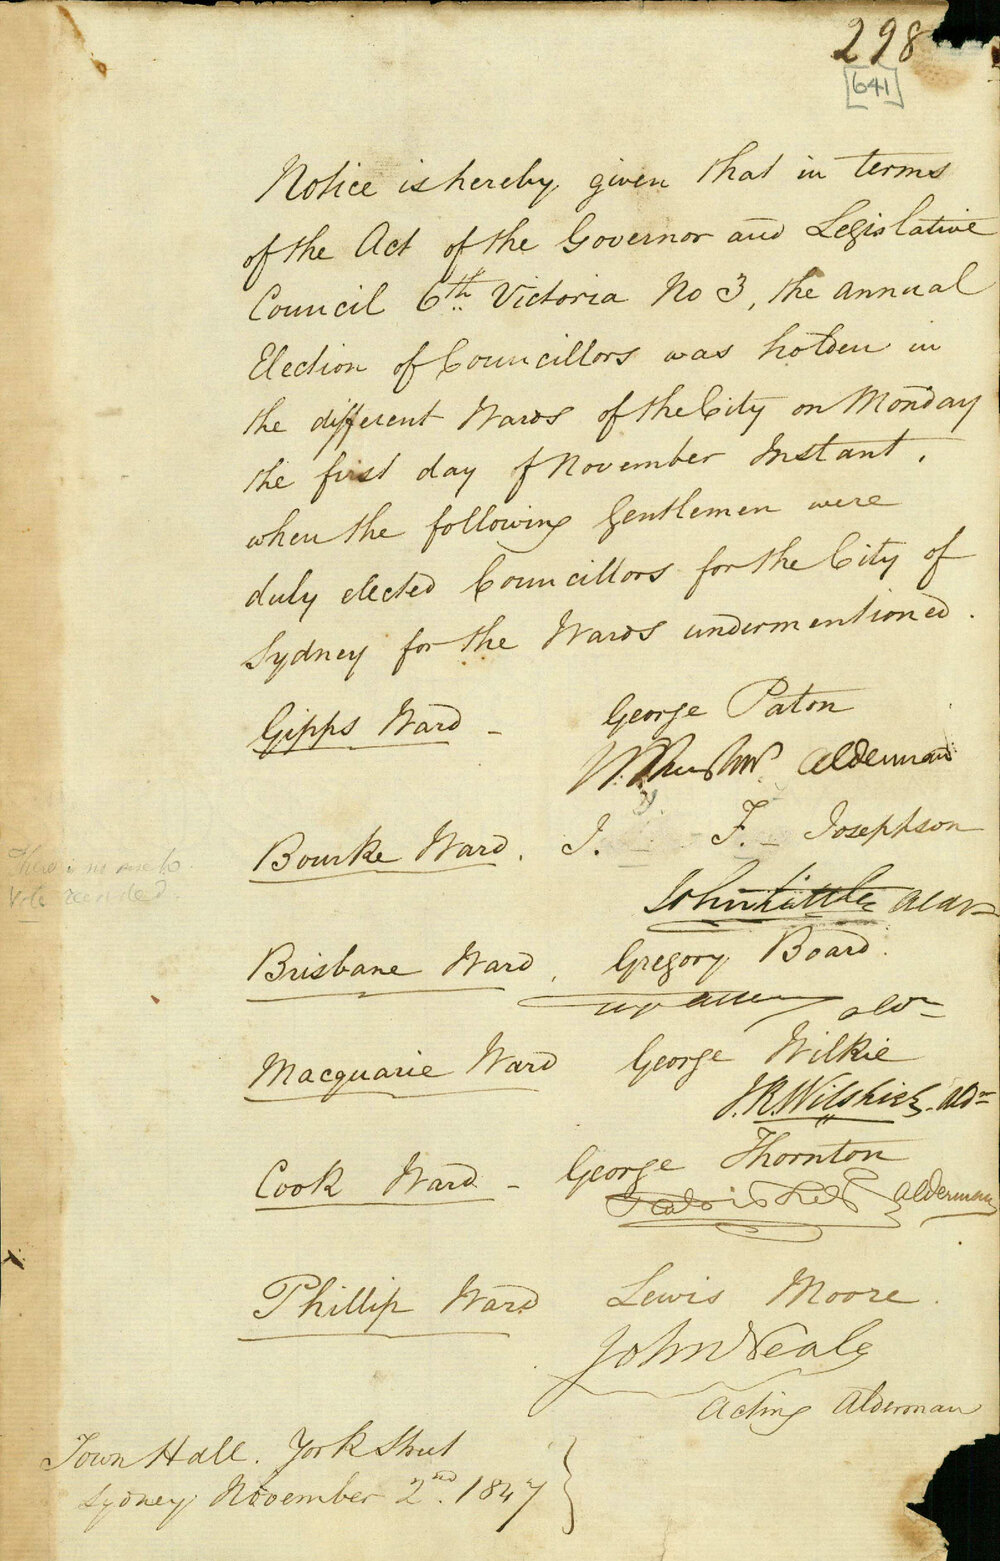 298
[641]
Notice is hereby given that in terms
of the Act of the Governor and Legislative
Council 6th Victoria No 3, the annual
Election of Councillors was holden in
the different Wards of the City on Monday
the first day of November Instant.
when the following Gentlemen were
duly elected Councillors for the City of
Sydney for the Wards undermentioned.
Gipps Ward - George Paton
Alderman
Bourke Ward. J. F. Josephson
John Little Aldr
Brisbane Ward. Gregory Board.
Aldn
Macquarie Ward George Wilkie
J.R. Wilshire Aldn
Cook Ward - George Thornton
Alderman
Phillip Ward Lewis Moore.
John Neale
Acting Alderman
There is no
Vote recorded
Town Hall. York Street
Sydney November 2nd. 1847